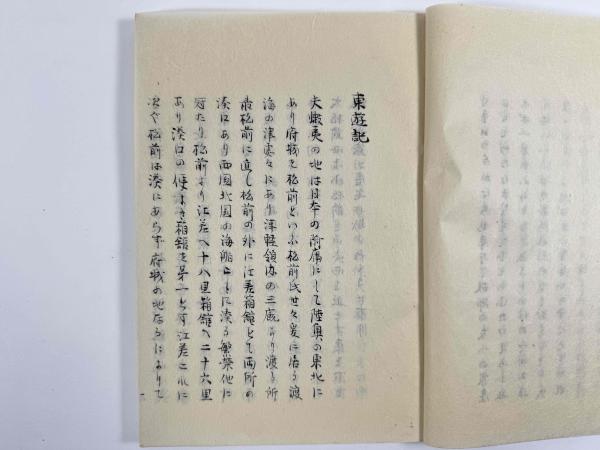 東遊記
夫蝦夷の地は日本の附属にして陸奥の東北に
あり府城を松前といふ松前氏世々爰に居る渡
海の津要々にあり津軽領内の三厩より渡る所
最松前に直し松前の外に江差箱館とて両所の
湊にあり西国北国の海船こゝに湊る繁栄他に
冠たり松前より江差へ十八里箱館へ二十六里
あり湊口の便よき箱舘を第一とす江差これに
次ぐ松前は湊にあらず府城の地なるによりて